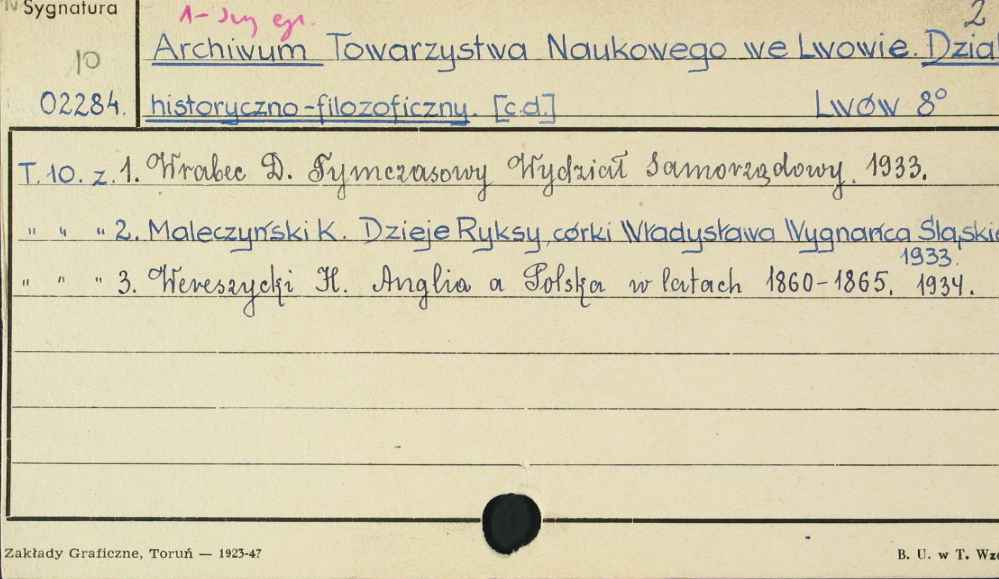 Sygnatura
1- egz.
2
Archiwum Towarzystwa Naukowego we Lwowie. Dział
10
02284. historyczno-filozoficzny. [c.d.] Lwów 8°
T. 10. z. 1. Wrabec D. Tymczasowy Wydział Samorządowy. 1933.
" " " 2. Maleczyński K. Dzieje Ryksy, córki Władysława Wygnańca Śląskie
1933.
" " " 3. Wereszycki H. Anglia a Polska w latach 1860-1865. 1934.
Zakłady Graficzne, Toruń — 1923-47
B. U. w T. Wzo